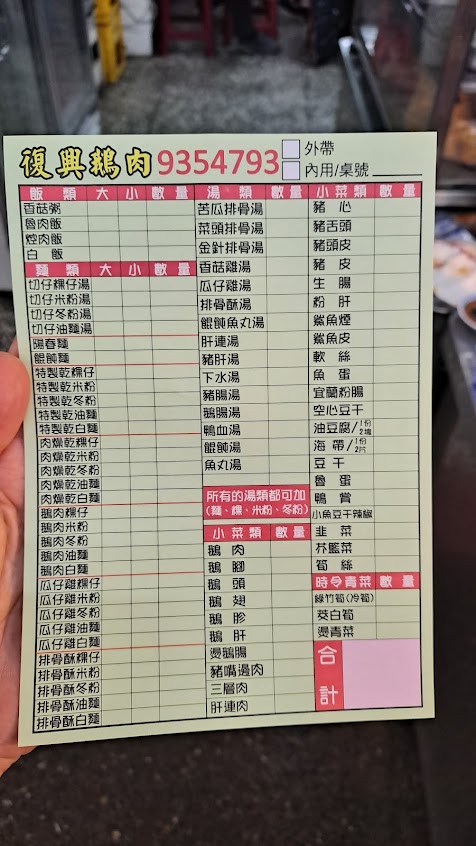 復興鵝肉 9354793
外帶
內用/桌號
飯類 大 小 數量
香菇粥
魯肉飯
焢肉飯
白飯
麵類 大 小 數量
切仔粿仔湯
切仔米粉湯
切仔冬粉湯
切仔油麵湯
陽春麵
餛飩麵
特製乾粿仔
特製乾米粉
特製乾冬粉
特製乾油麵
特製乾白麵
肉燥乾粿仔
肉燥乾米粉
肉燥乾冬粉
肉燥乾油麵
肉燥乾白麵
鵝肉粿仔
鵝肉米粉
鵝肉冬粉
鵝肉油麵
鵝肉白麵
瓜仔雞粿仔
瓜仔雞米粉
瓜仔雞冬粉
瓜仔雞油麵
瓜仔雞白麵
排骨酥粿仔
排骨酥米粉
排骨酥冬粉
排骨酥油麵
排骨酥白麵
湯類 數量
苦瓜排骨湯
菜頭排骨湯
金針排骨湯
香菇雞湯
瓜仔雞湯
排骨酥湯
餛飩魚丸湯
肝連湯
豬肝湯
下水湯
豬腸湯
鵝腸湯
鴨血湯
餛飩湯
魚丸湯
所有的湯類都可加
(麵、粿、米粉、冬粉)
小菜類 數量
鵝肉
鵝腳
鵝頭
鵝翅
鵝胗
鵝肝
燙鵝腸
豬嘴邊肉
三層肉
肝連肉
小菜類 數量
豬心
豬舌頭
豬頭皮
豬皮
生腸
粉肝
鯊魚煙
鯊魚皮
軟絲
魚蛋
宜蘭粉腸
空心豆干
油豆腐/1份2塊
海帶/1份2片
豆干
魯蛋
鴨賞
小魚豆干辣椒
韭菜
芥藍菜
筍絲
時令青菜 數量
綠竹筍(冷筍)
茭白筍
燙青菜
合計